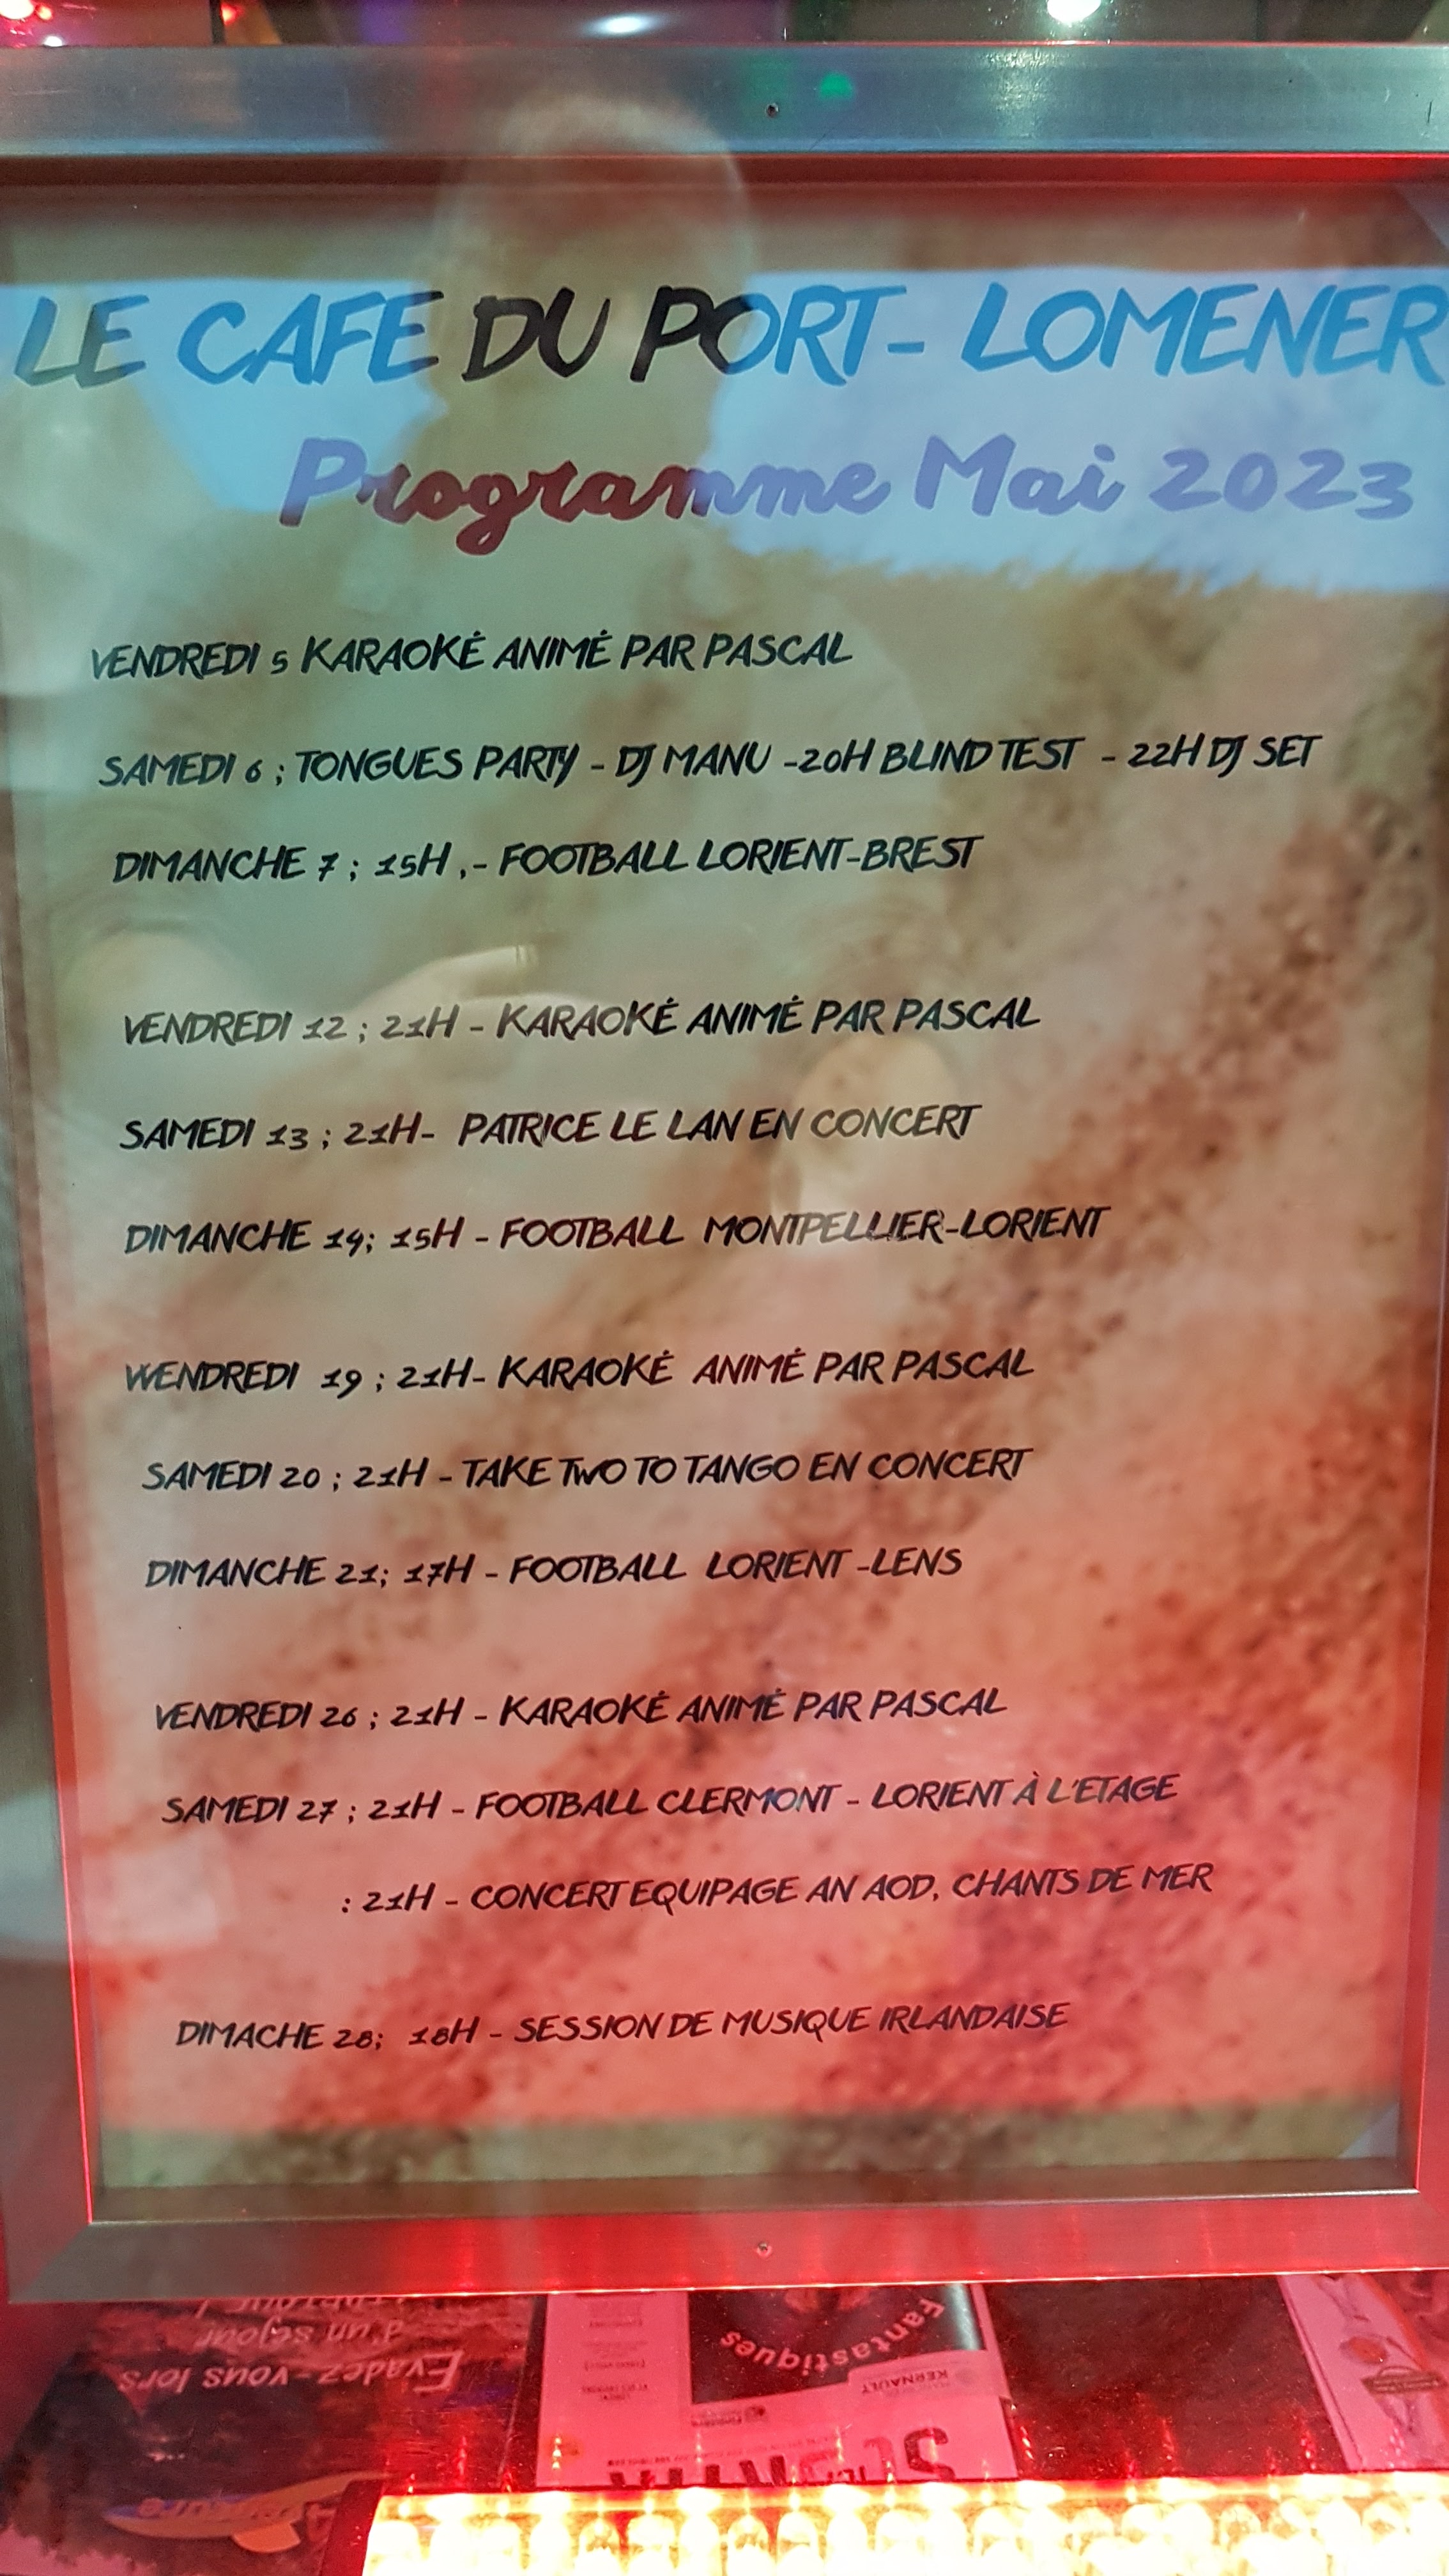 LE CAFE DU PORT - LOMENER
Programme Mai 2023
VENDREDI 5 KARAOKÉ ANIMÉ PAR PASCAL
SAMEDI 6 ; TONGUES PARTY - DJ MANU -20H BLIND TEST - 22H DJ SET
DIMANCHE 7 ; 15H ,- FOOTBALL LORIENT-BREST
VENDREDI 12 ; 21H - KARAOKÉ ANIMÉ PAR PASCAL
SAMEDI 13 ; 21H- PATRICE LE LAN EN CONCERT
DIMANCHE 14; 15H - FOOTBALL MONTPELLIER-LORIENT
WENDREDI 19 ; 21H- KARAOKÉ ANIMÉ PAR PASCAL
SAMEDI 20 ; 21H - TAKE TWO TO TANGO EN CONCERT
DIMANCHE 21; 17H - FOOTBALL LORIENT -LENS
VENDREDI 26 ; 21H - KARAOKÉ ANIMÉ PAR PASCAL
SAMEDI 27 ; 21H - FOOTBALL CLERMONT - LORIENT À L'ETAGE
: 21H - CONCERT EQUIPAGE AN AOD, CHANTS DE MER
DIMACHE 28; 18H - SESSION DE MUSIQUE IRLANDAISE
Evadez-vous lors
d'un séjour
Fantastiques
KERNAULT